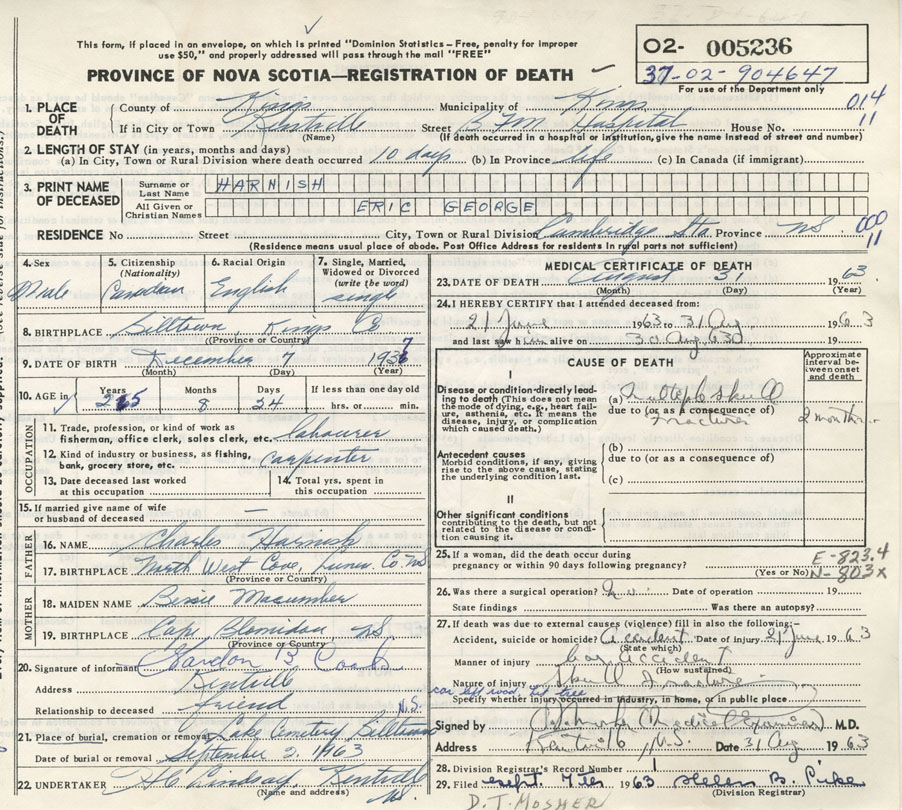 This form, if placed in an envelope, on which is printed "Dominion Statistics – Free, penalty for improper
use $50," and properly addressed will pass through the mail "FREE"
PROVINCE OF NOVA SCOTIA—REGISTRATION OF DEATH
O2- 005236
37-02-904647
For use of the Department only
1. PLACE OF DEATH
County of Kings Municipality of Kings 014
If in City or Town Kentville Street B F M Hospital House No. 11
(Name) (If death occurred in a hospital or institution, give the name instead of street and number)
2. LENGTH OF STAY (in years, months and days)
(a) In City, Town or Rural Division where death occurred 10 days (b) In Province life (c) In Canada (if immigrant)
3. PRINT NAME OF DECEASED
Surname or Last Name HARNISH
All Given or Christian Names ERIC GEORGE
RESIDENCE No Street City, Town or Rural Division Cambridge Sta Province NS 000
11
(Residence means usual place of abode. Post Office Address for residents in rural parts not sufficient)
4. Sex Male
5. Citizenship (Nationality) Canadian
6. Racial Origin English
7. Single, Married, Widowed or Divorced (write the word) single
8. BIRTHPLACE Billtown, Kings Co
(Province or Country)
9. DATE OF BIRTH December 7 193
(Month) (Day) (Year)
10. AGE in Years Months 8 Days 24 If less than one day old hrs. or min.
OCCUPATION
11. Trade, profession, or kind of work as fisherman, office clerk, sales clerk, etc. labourer
12. Kind of industry or business, as fishing, bank, grocery store, etc. carpenter
13. Date deceased last worked at this occupation
14. Total yrs. spent in this occupation
15. If married give name of wife or husband of deceased —
FATHER
16. NAME Charles Harnish
17. BIRTHPLACE North West Cove, Lunen. Co. NS
(Province or Country)
MOTHER
18. MAIDEN NAME Macumber
19. BIRTHPLACE Cape Blomidon NS.
(Province or Country)
20. Signature of informant Gordon B
Address Kentville N.S.
Relationship to deceased Friend
21. Place of burial, cremation or removal Lake Cemetery, Billtown
Date of burial or removal September 2, 1963
22. UNDERTAKER H C Lindsay, Kentville NS.
(Name and address)
MEDICAL CERTIFICATE OF DEATH
23. DATE OF DEATH August 31 1963
(Month) (Day) (Year)
24. I HEREBY CERTIFY that I attended deceased from:
21 June 1963 to 31 Aug 1963
and last saw h alive on 30 Aug 63
CAUSE OF DEATH
Approximate interval between onset and death
I
Disease or condition directly leading to death (This does not mean the mode of dying, e.g., heart failure, asthenia, etc. It means the disease, injury, or complication which caused death.)
(a) Multiple skull
due to (or as a consequence of)
fractures 2 months
Antecedent causes
Morbid conditions, if any, giving rise to the above cause, stating the underlying condition last.
(b)
due to (or as a consequence of)
(c)
II
Other significant conditions contributing to the death, but not related to the disease or condition causing it.
25. If a woman, did the death occur during pregnancy or within 90 days following pregnancy?
(Yes or No)
E-823.4
N-803x
26. Was there a surgical operation? no Date of operation 19
State findings Was there an autopsy?
27. If death was due to external causes (violence) fill in also the following:
Accident, suicide or homicide? Accident Date of injury 21 June 1963
(State which)
Manner of injury Car accident
(How sustained)
Nature of injury Skull fracture
car left road, hit tree
Specify whether injury occurred in industry, in home, or in public place.
Signed by (Medical Examiner) M.D.
Address Kentville N.S. Date 31 Aug 1963
28. Division Registrar's Record Number 1
29. Filed Sept. 1963 Helen B. Pike
(Division Registrar)
D. T. MOSHER